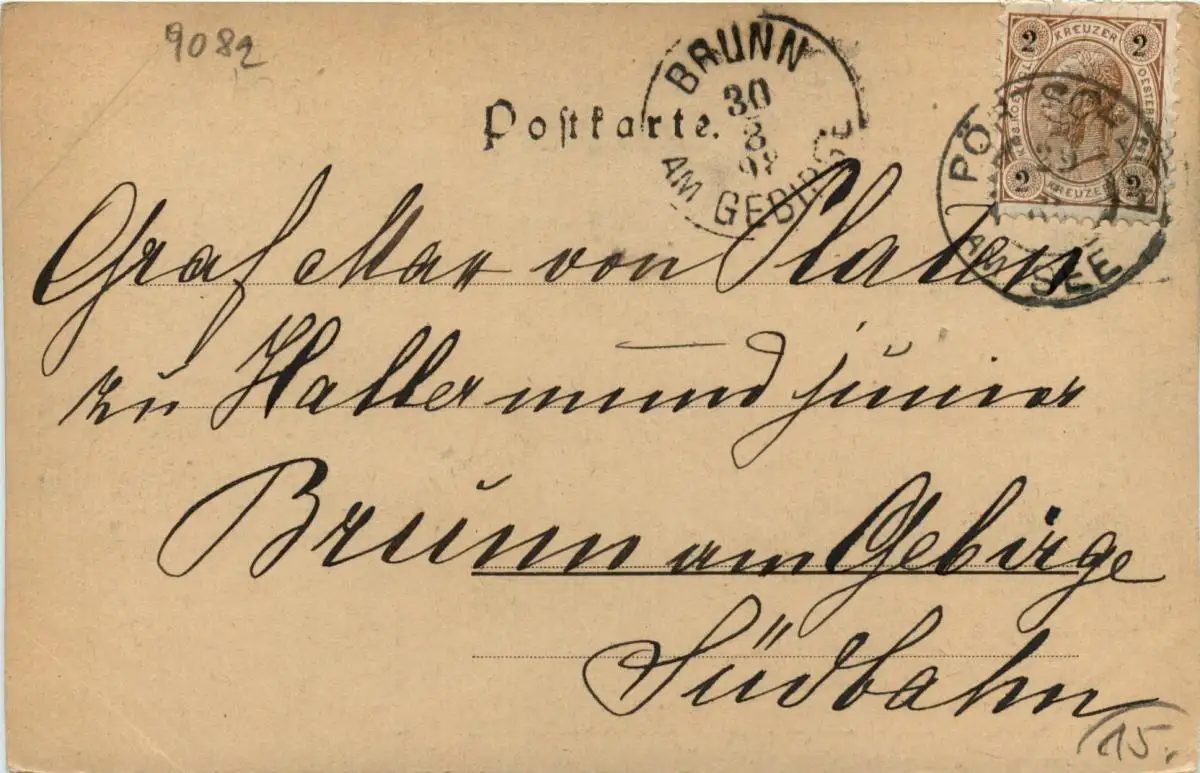 9082
Postkarte.
BRUNN
30
8
AM GEBIRGE
2 KREUZER 2
2 KREUZER 2
AM SEE
Graf Max von Platen
zu Hallermund junior
Brunn am Gebirge
Südbahn
15.